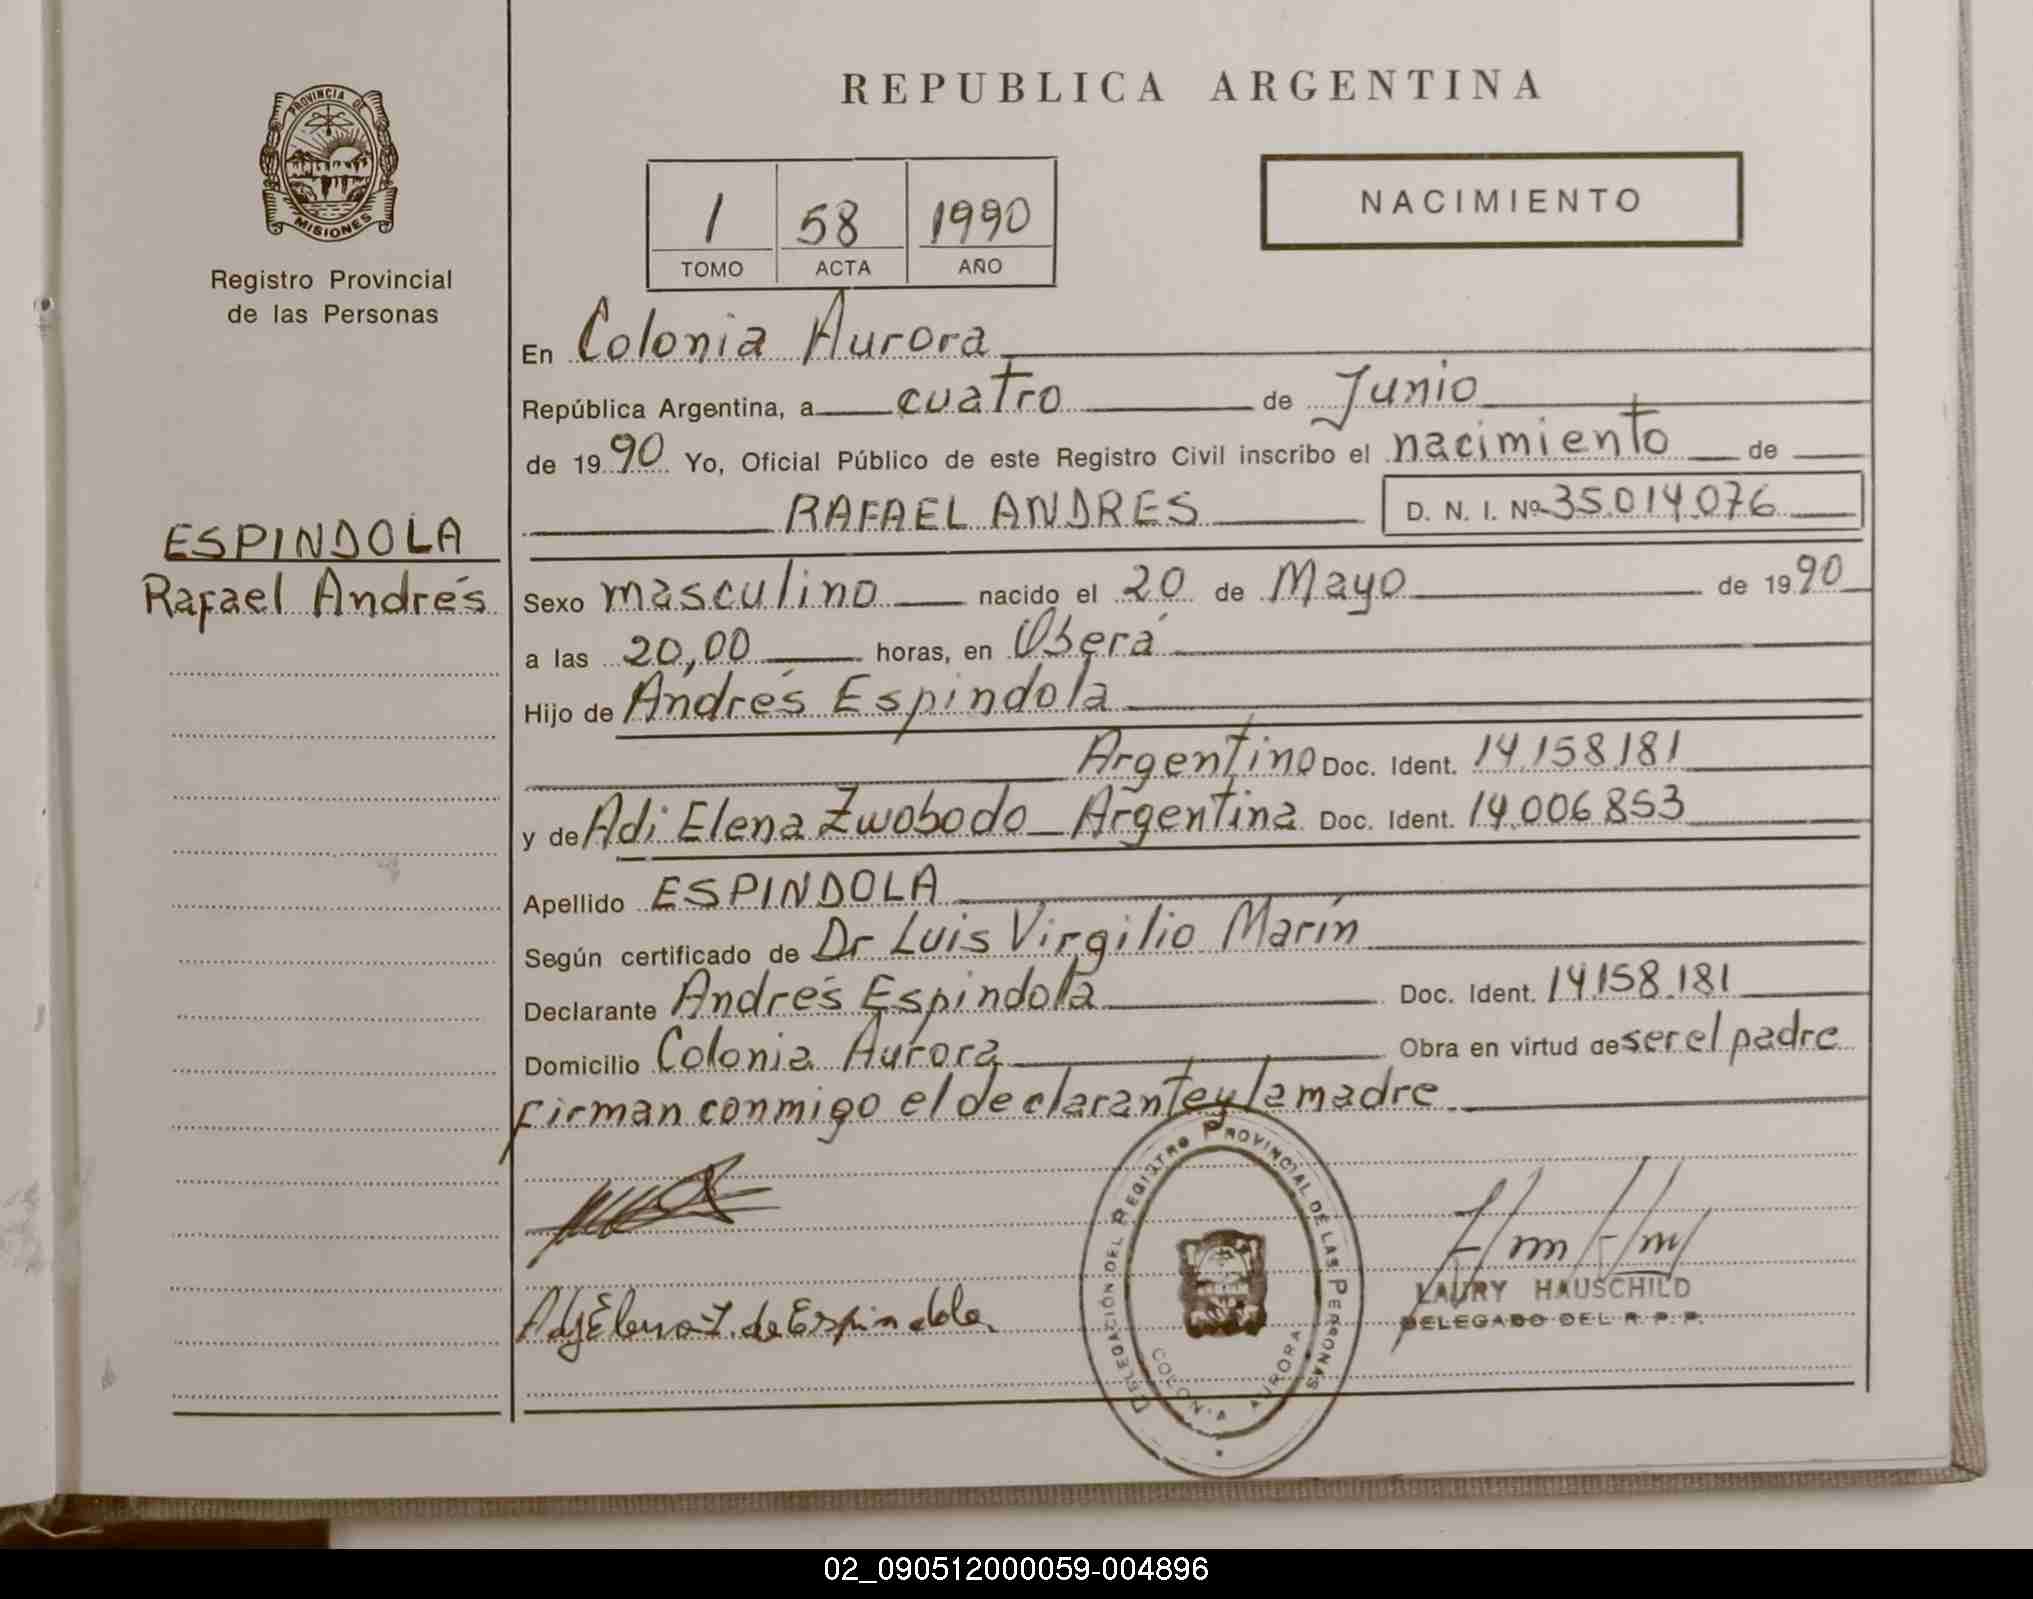 REPUBLICA ARGENTINA
PROVINCIA DE
MISIONES
Registro Provincial
de las Personas
1 58 1990
TOMO ACTA AÑO
NACIMIENTO
En Colonia Aurora
República Argentina, a cuatro de Junio
de 1990 Yo, Oficial Público de este Registro Civil inscribo el nacimiento de
RAFAEL ANDRES D. N. I. Nº 35.014.076
ESPINDOLA
Rafael Andrés
Sexo masculino nacido el 20 de Mayo de 1990
a las 20,00 horas, en Oberá
Hijo de Andrés Espindola
Argentino Doc. Ident. 14.158.181
y de Adi Elena Zwobodo Argentina Doc. Ident. 14.006.853
Apellido ESPINDOLA
Según certificado de Dr Luis Virgilio Marín
Declarante Andrés Espindola Doc. Ident. 14.158.181
Domicilio Colonia Aurora Obra en virtud de ser el padre
Firman conmigo el declarante y la madre
DELEGACIÓN DEL REGISTRO PROVINCIAL DE LAS PERSONAS
COLONIA AURORA
de Espindola
LAURY HAUSCHILD
DELEGADO DEL R. P. P.
02_090512000059-004896